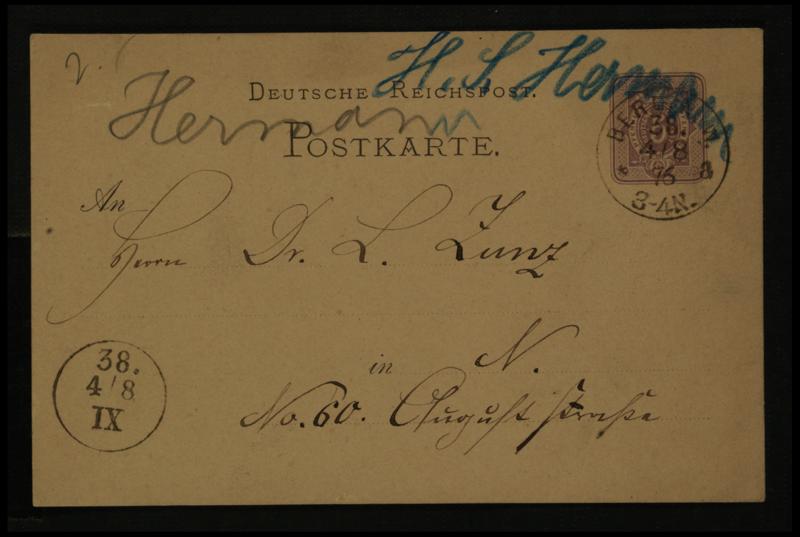 v.
H. S. Hermann
Hermann
DEUTSCHE REICHSPOST.
POSTKARTE.
BERLIN, N.
38.
4/8
76
3-4N.
An
Herrn Dr. L. Zunz
in N.
No. 60. Auguststraße
38.
4/8
IX